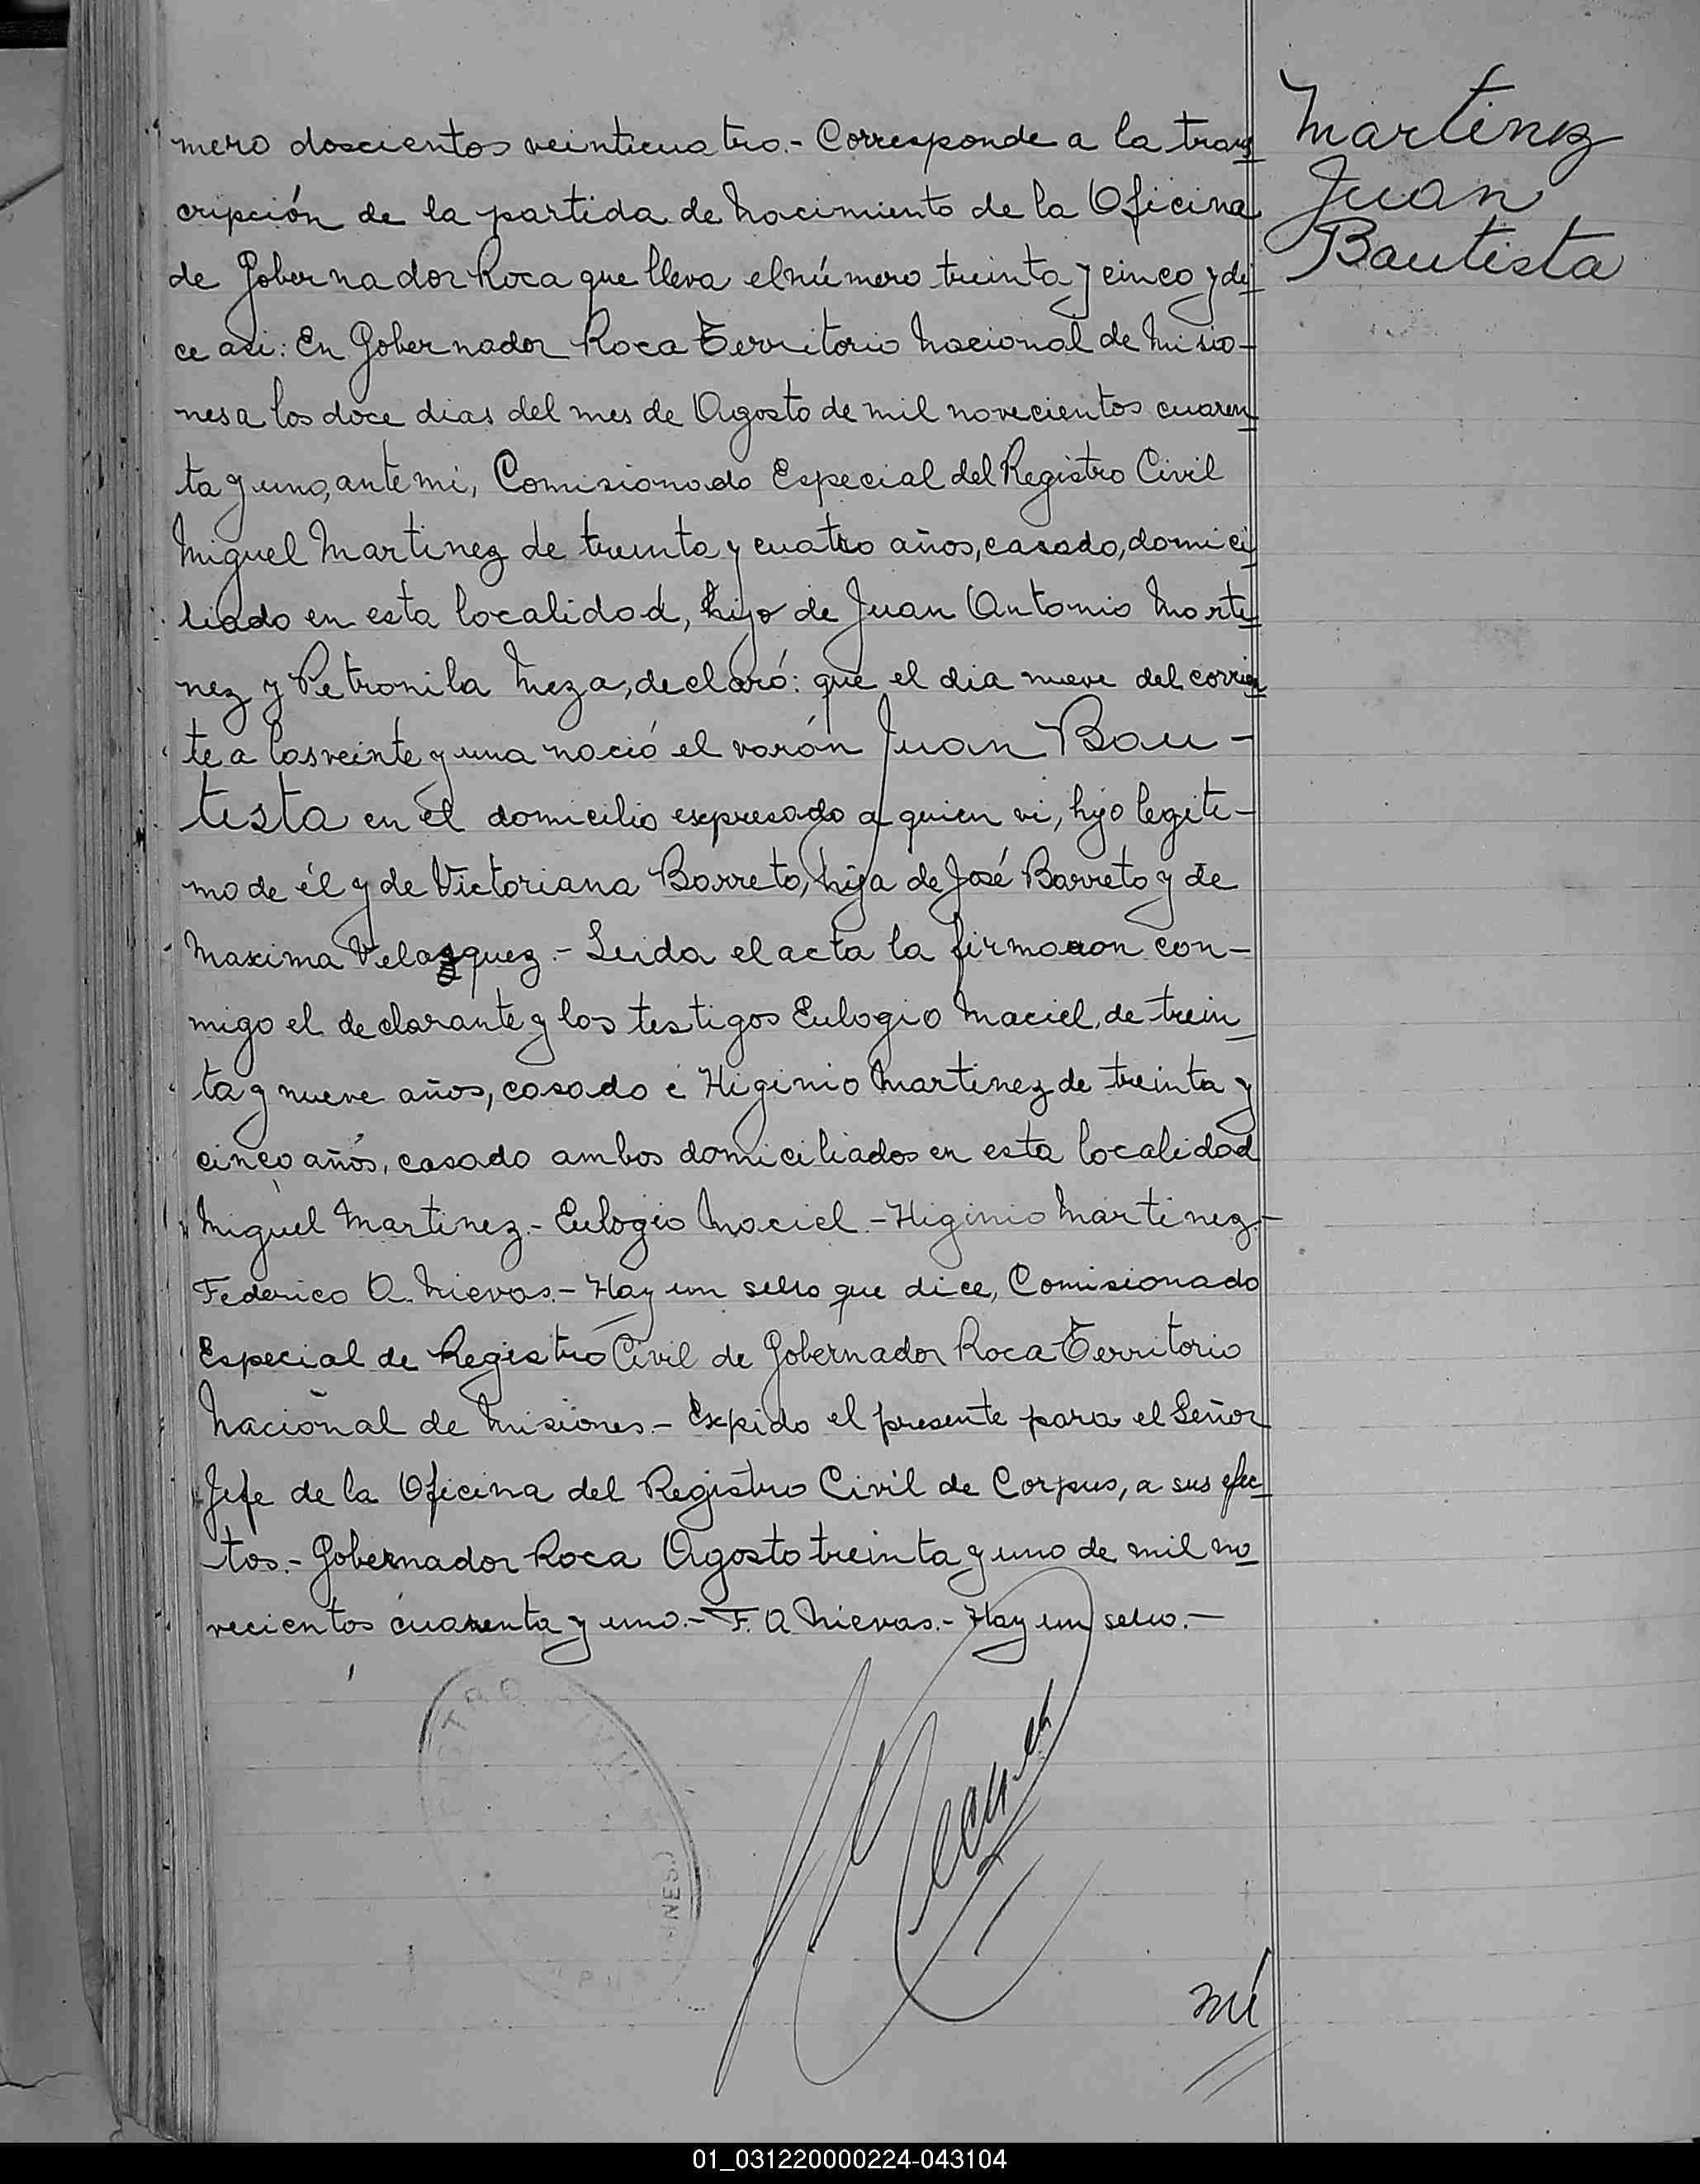 mero doscientos veinticuatro.- Corresponde a la trans
cripción de la partida de Nacimiento de la Oficina
de Gobernador Roca que lleva el número treinta y cinco y di
ce asi: En Gobernador Roca Territorio Nacional de Misio-
nes a los doce dias del mes de Agosto de mil novecientos cuaren
ta y uno, ante mi, Comisionado Especial del Registro Civil
Miguel Martinez de treinta y cuatro años, casado, domici
liado en esta localidad, hijo de Juan Antonio Marti
nez y Petronila Meza, declaró: que el dia nueve del corrien
te a las veinte y una nació el varón Juan Bau-
tista en el domicilio expresado a quien vi, hijo legiti-
mo de él y de Victoriana Barreto, hija de José Barreto y de
Maxima Velazquez.- Leida el acta la firmaron con-
migo el declarante y los testigos Eulogio Maciel, de trein
ta y nueve años, casado é Higinio Martinez de treinta y
cinco años, casado ambos domiciliados en esta localidad
Miguel Martinez.- Eulogio Maciel.- Higinio Martinez.-
Federico A. Nievas.- Hay un sello que dice, Comisionado
Especial de Registro Civil de Gobernador Roca Territorio
Nacional de Misiones.- Expido el presente para el Señor
Jefe de la Oficina del Registro Civil de Corpus, a sus efec
tos.- Gobernador Roca Agosto treinta y uno de mil no
vecientos cuarenta y uno.- F. A Nievas.- Hay un sello.-
Martinez
Juan
Bautista
Nú
01_031220000224-043104